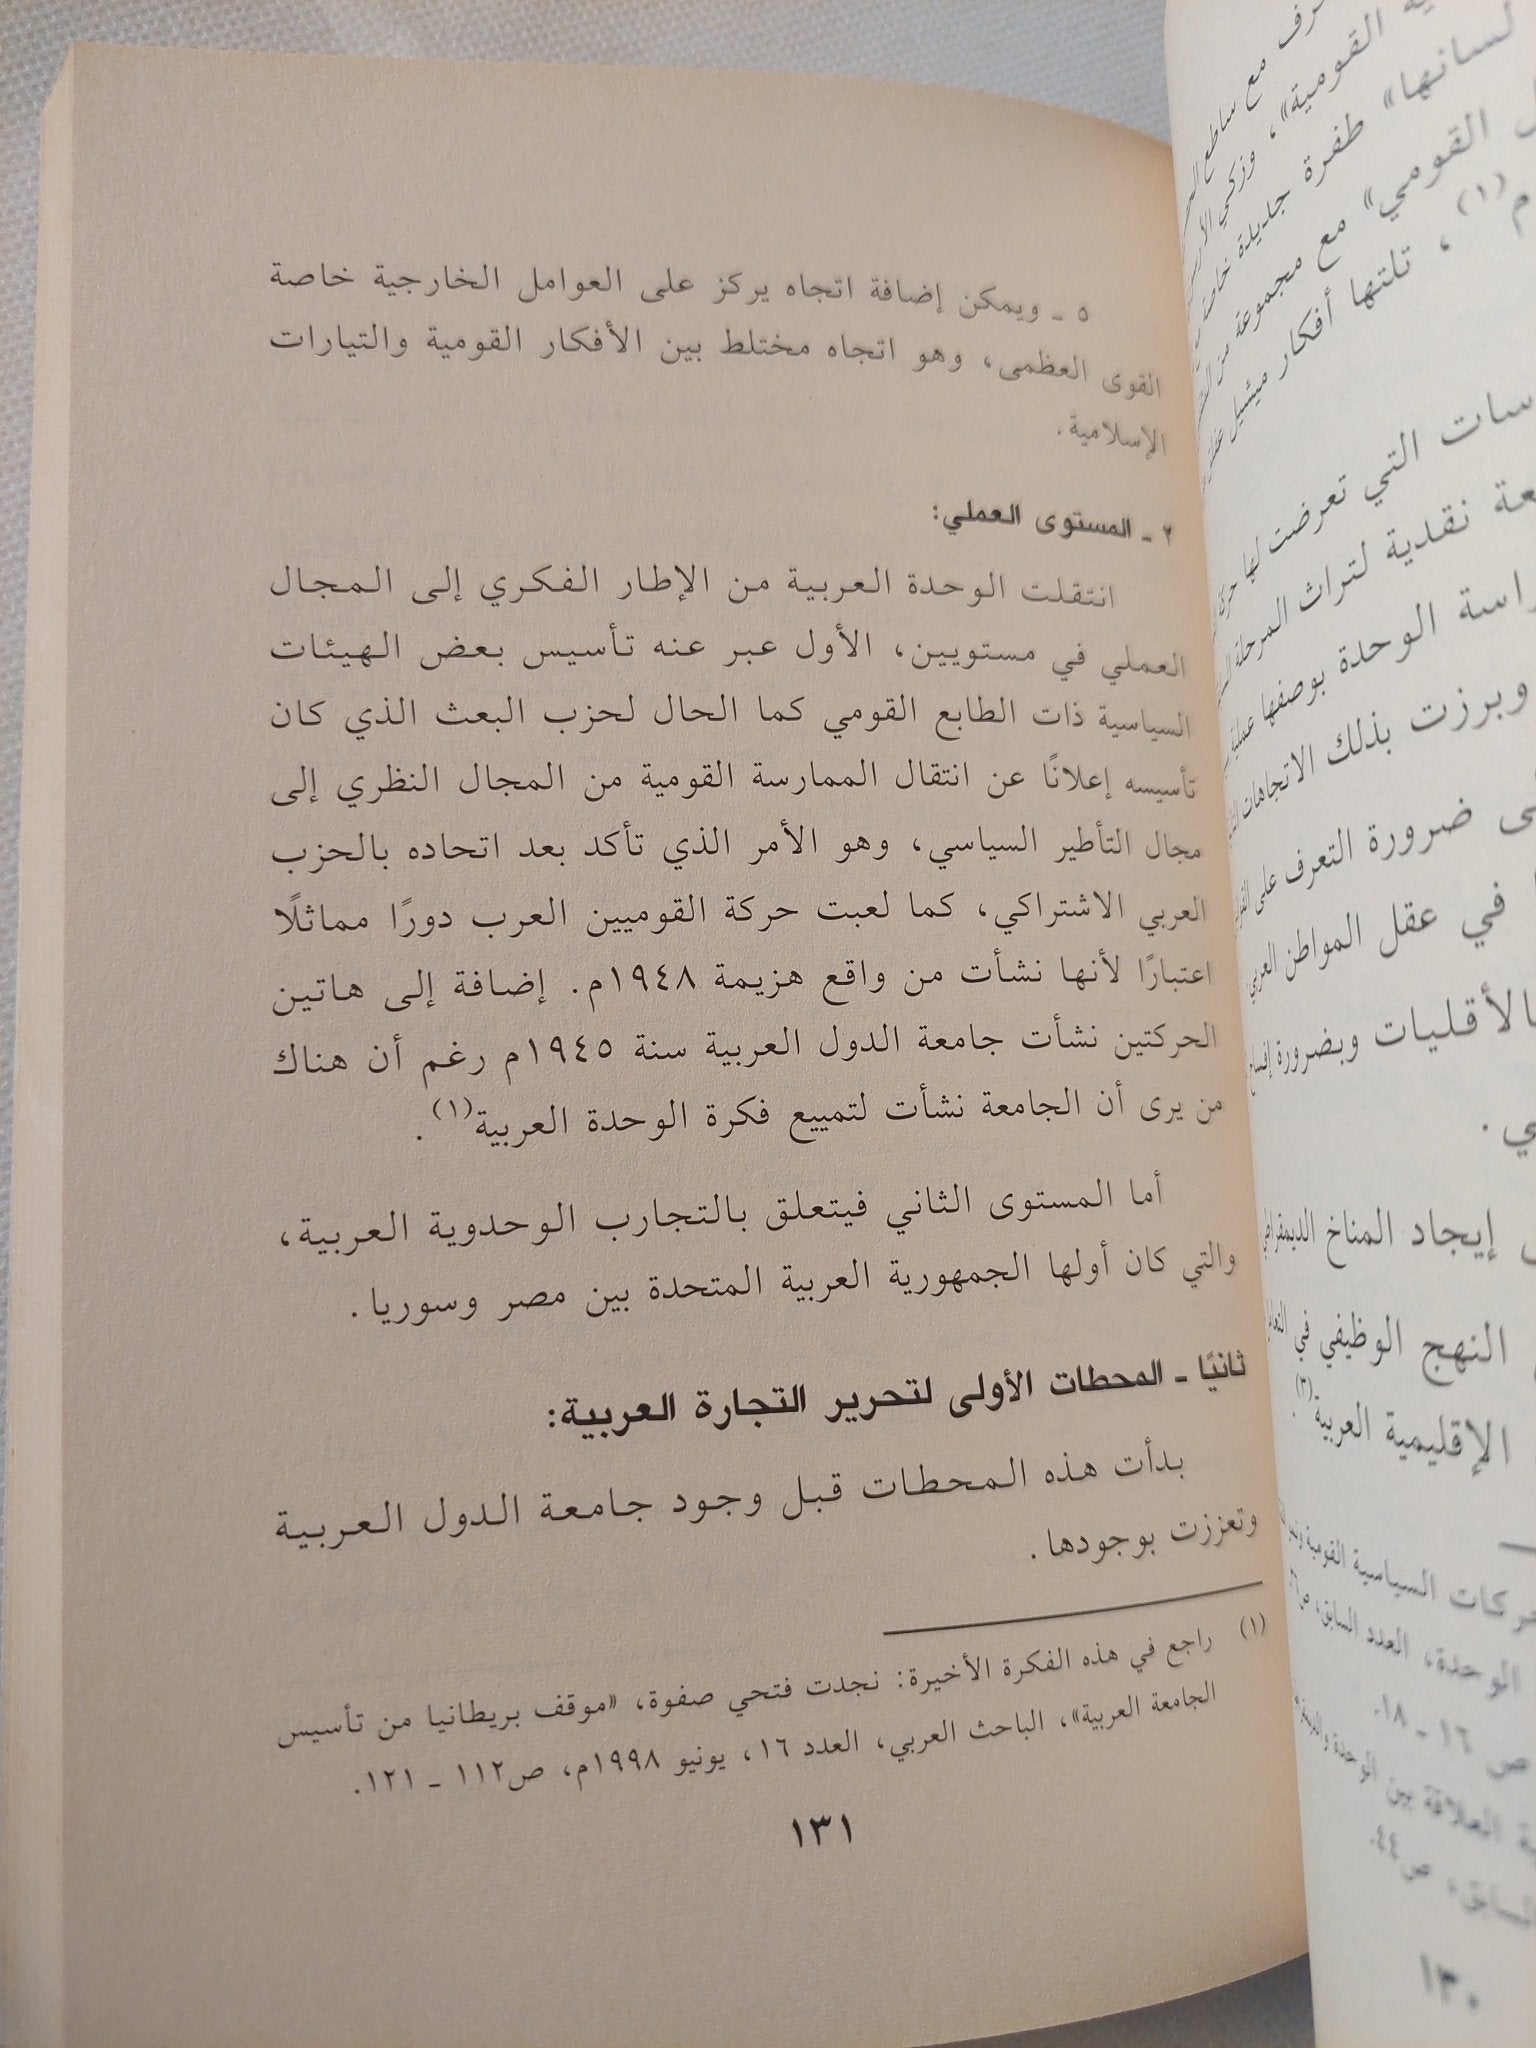 رف مع ساطع
ية القومية»، وزكي
لسانها» طفرة جديدة خاصة
القومي» مع مجموعة من
م(١)، تلتها أفكار ميشيل
سات التي تعرضت لها
عة نقدية لتراث المرحلة
راسة الوحدة بوصفها عملية
وبرزت بذلك الاتجاهات
ى ضرورة التعرف على
في عقل المواطن العربي
بالأقليات وبضرورة
ي.
إيجاد المناخ الديمقراطي
النهج الوظيفي في
الإقليمية العربية(٣).
حركات السياسية القومية
الوحدة، العدد السابق،
ص ١٦ ـ ١٨.
العلاقة بين الوحدة
السابق، ص٤٤
١٣٠
٥ ـ ويمكن إضافة اتجاه يركز على العوامل الخارجية خاصة
القوى العظمى، وهو اتجاه مختلط بين الأفكار القومية والتيارات
الإسلامية.
٢ ـ المستوى العملي:
انتقلت الوحدة العربية من الإطار الفكري إلى المجال
العملي في مستويين، الأول عبر عنه تأسيس بعض الهيئات
السياسية ذات الطابع القومي كما الحال لحزب البعث الذي كان
تأسيسه إعلانًا عن انتقال الممارسة القومية من المجال النظري إلى
مجال التأطير السياسي، وهو الأمر الذي تأكد بعد اتحاده بالحزب
العربي الاشتراكي، كما لعبت حركة القوميين العرب دورًا مماثلًا
اعتبارًا لأنها نشأت من واقع هزيمة ١٩٤٨م. إضافة إلى هاتين
الحركتين نشأت جامعة الدول العربية سنة ١٩٤٥م رغم أن هناك
من يرى أن الجامعة نشأت لتمييع فكرة الوحدة العربية(١).
أما المستوى الثاني فيتعلق بالتجارب الوحدوية العربية،
والتي كان أولها الجمهورية العربية المتحدة بين مصر وسوريا.
ثانيًا ـ المحطات الأولى لتحرير التجارة العربية:
بدأت هذه المحطات قبل وجود جامعة الدول العربية
وتعززت بوجودها.
(١) راجع في هذه الفكرة الأخيرة: نجدت فتحي صفوة، «موقف بريطانيا من تأسيس
الجامعة العربية»، الباحث العربي، العدد ١٦، يونيو ١٩٩٨م، ص١١٢ ـ ١٢١.
١٣١